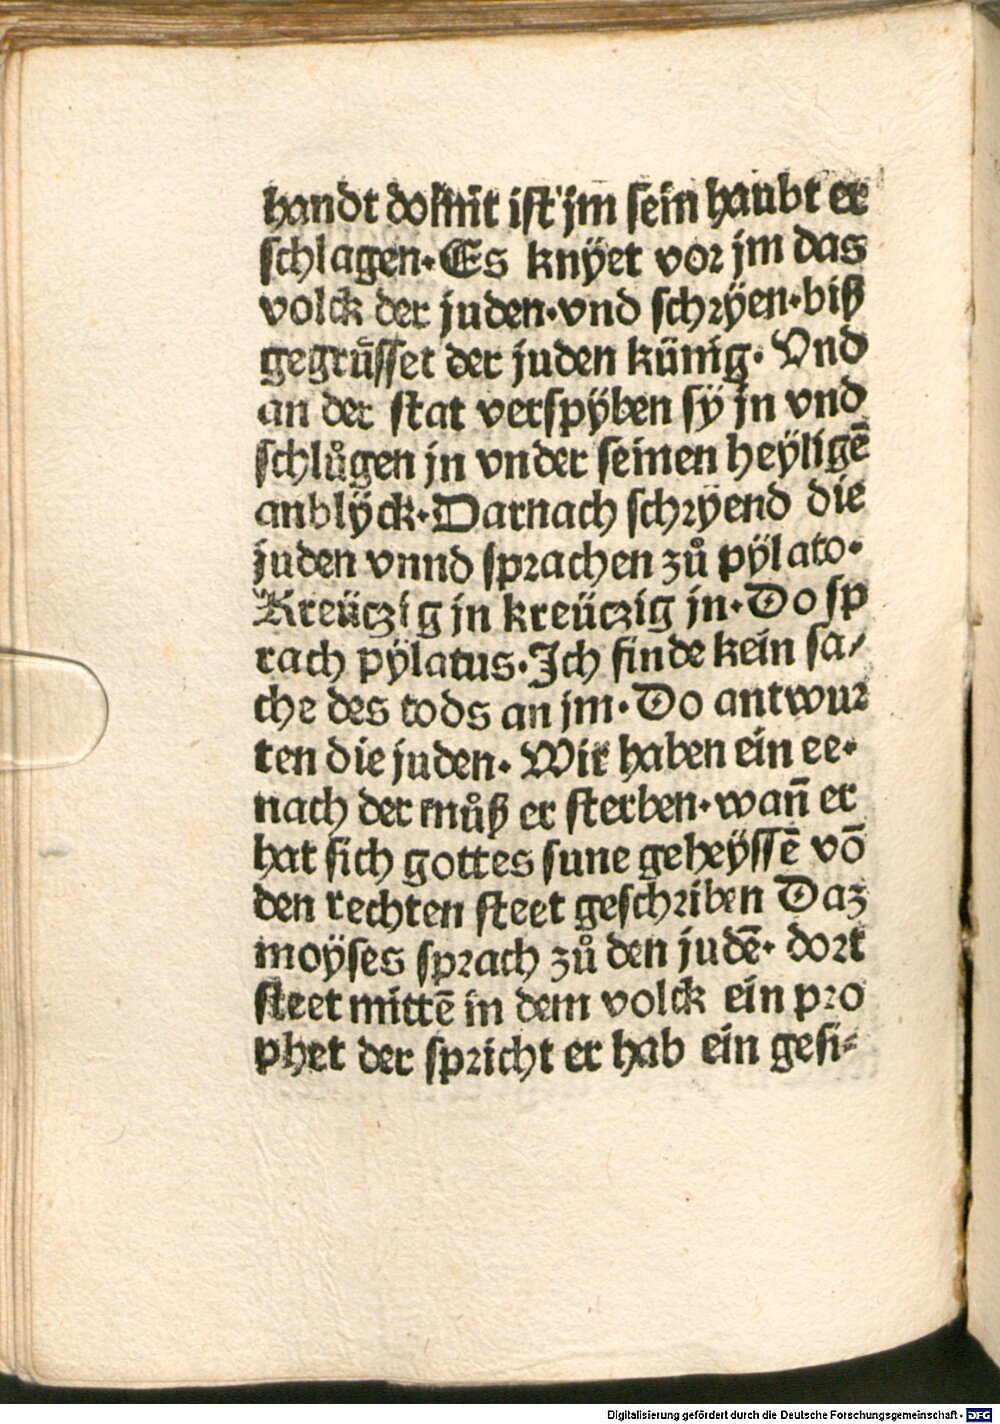 handt domit ist jm sein haubt er
schlagen. Es knÿet vor jm das
volck der juden. vnd schrÿen. biß
gegrüsset der juden künig. Vnd
an der stat verspÿben sÿ jn vnd
schlůgen jn vnder seinen heÿligē
anblÿck. Darnach schrÿend die
juden vnnd sprachen zů pÿlato.
Kreüczig jn kreüczig jn. Do sp
rach pÿlatus. Ich finde kein sa⸗
che des tods an jm. Do antwur
ten die juden. Wir haben ein ee.
nach der můß er sterben. wañ er
hat sich gottes sune geheÿssē võ
den rechten steet geschriben Daz
moÿses sprach zů den judē. dort
steet mittē in dem volck ein pro
phet der spricht er hab ein gesi⸗
Digitalisierung gefördert durch die Deutsche Forschungsgemeinschaft - DFG